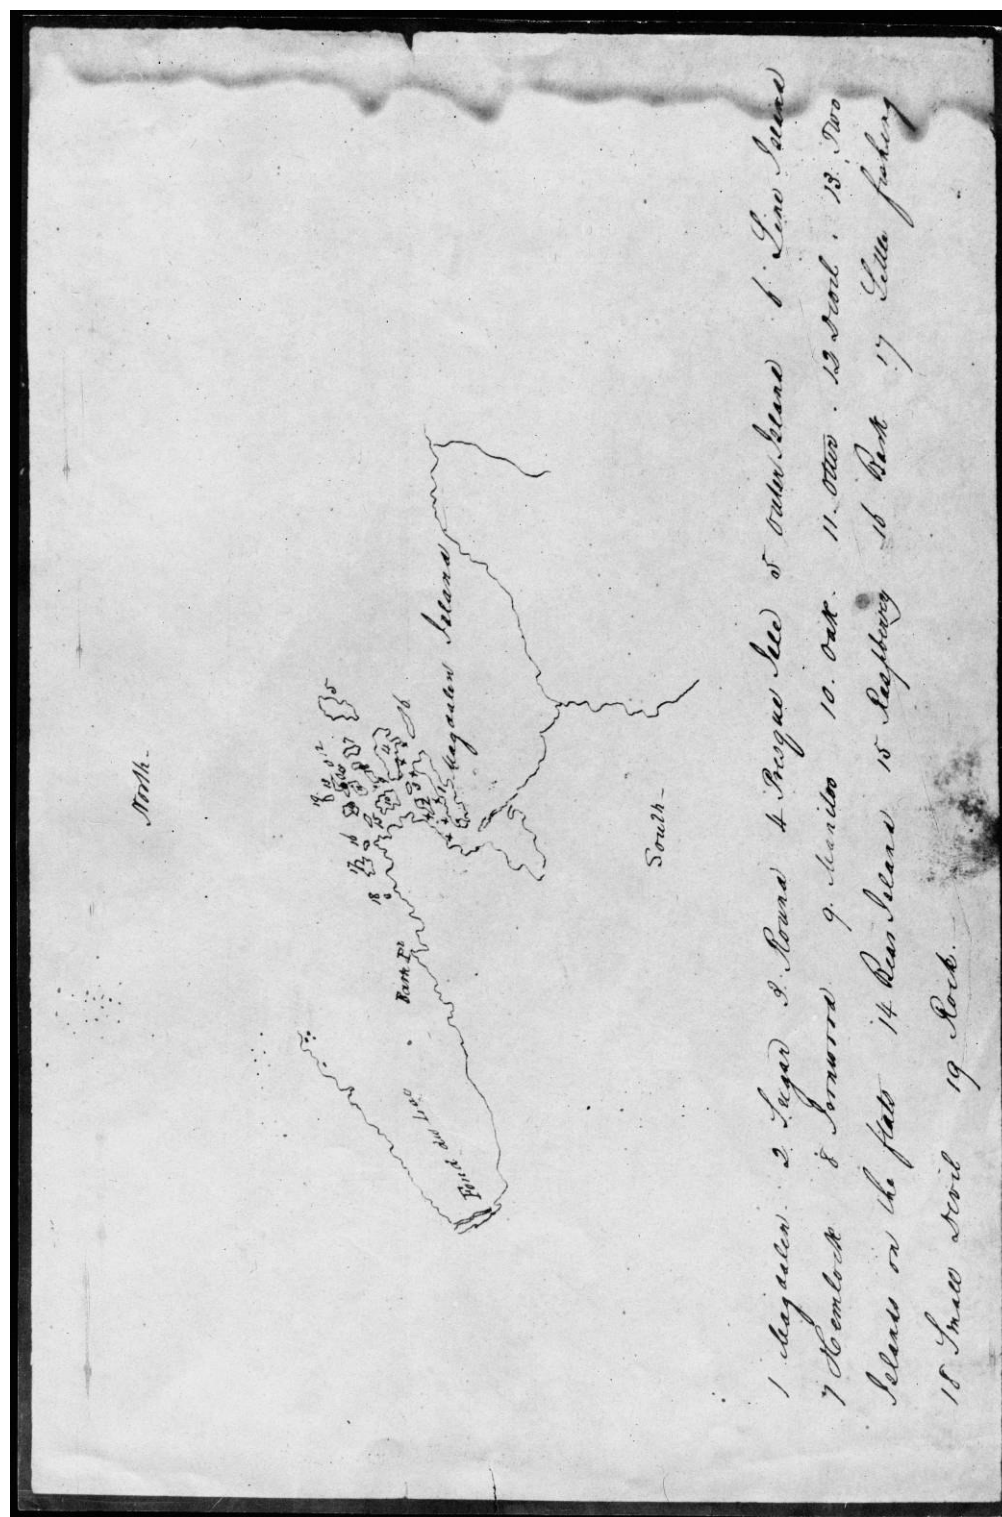 North-
5
6
19
12
16
17
18
Bark Pt
Magdalen Island
Fond du Lac
South-
1 Magdalen. 2 Sugar 3. Round 4 Presque Isle 5 outer Island 6. Line Island
7 Hemlock 8 Ironwood 9. Manitoo 10. Oak. 11. Otter. 12 Devil. 13. Two
Islands on the flats 14 Bear Island 15 Raspberry 16 Bark 17 Little fishing
18 Small Devil 19 Rock.